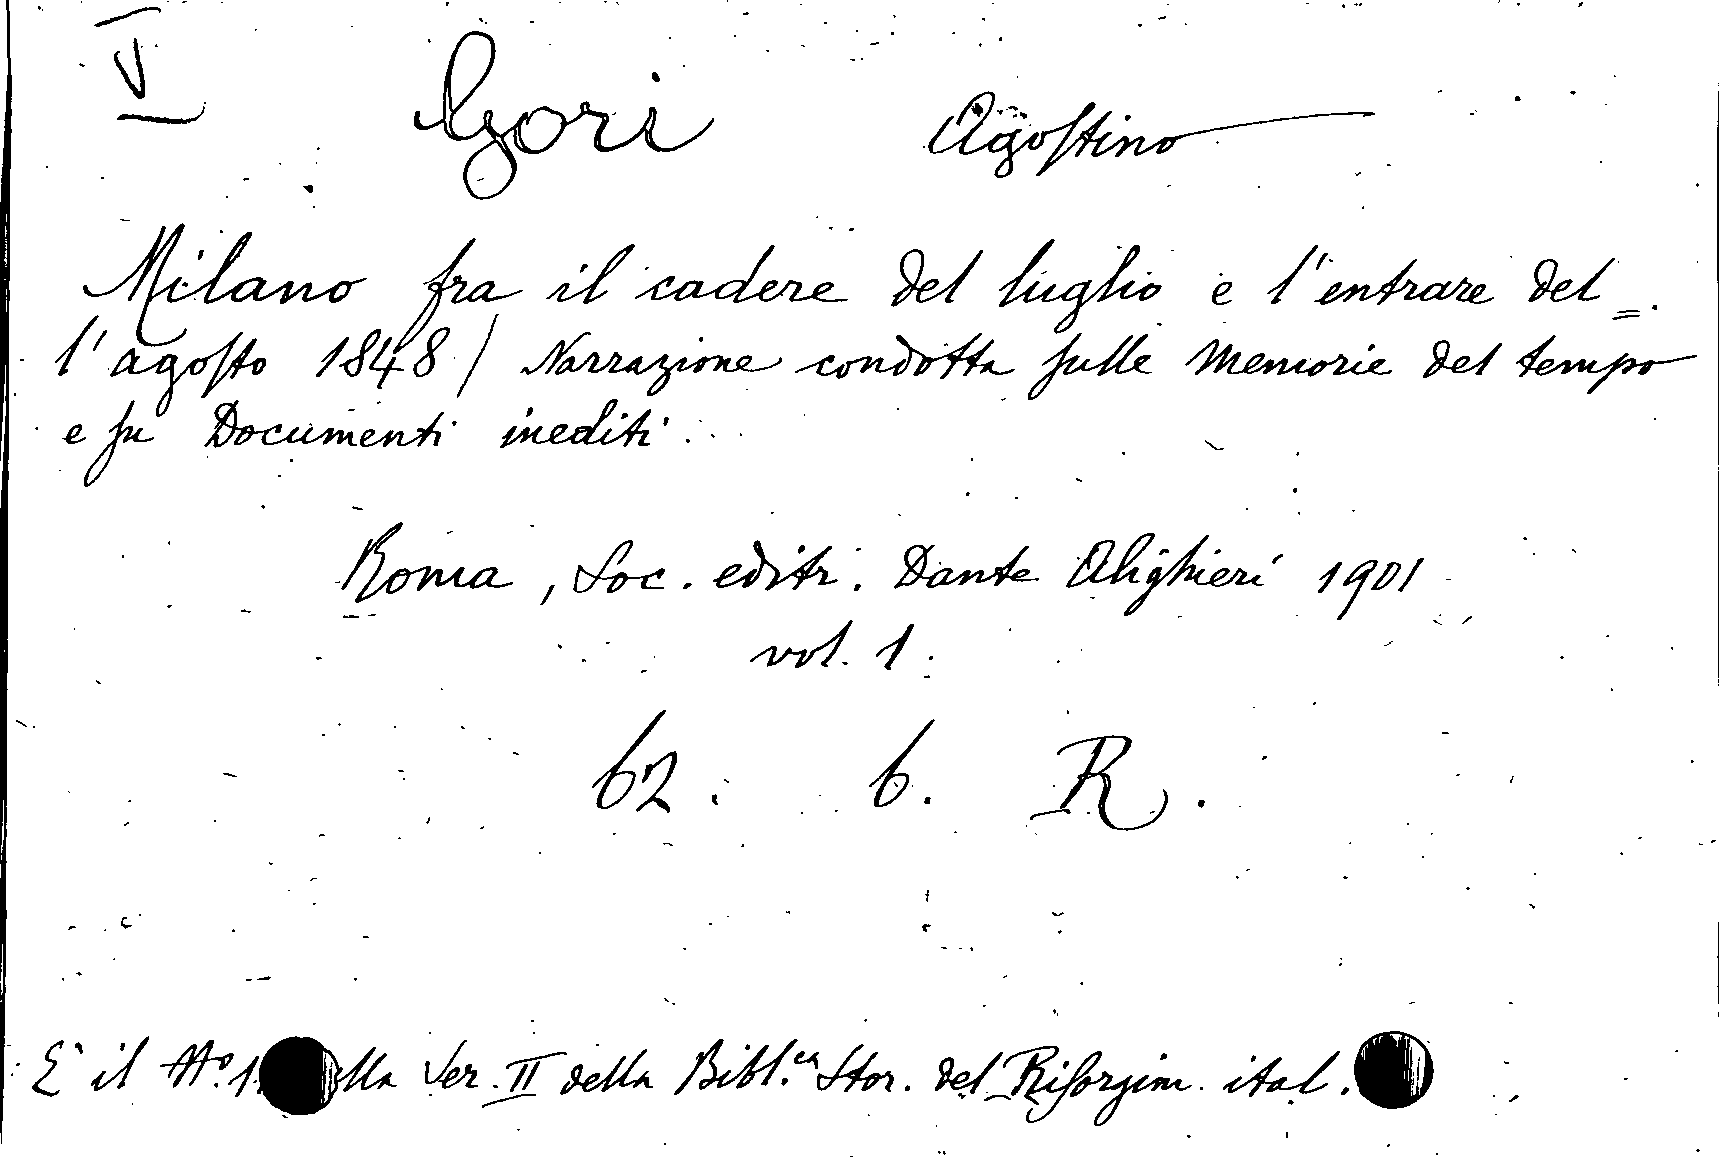 V Gori Agostino
Milano fra il cadere del luglio e l'entrare del=
l'agosto 1848 / Narrazione condotta sulle Memorie del tempo
e su Documenti inediti.
Roma, Soc. editr. Dante Alighieri 1901
vol. 1.
62. 6. R.
E' il No. 1 lla Ser. II della Bibl.ca Stor. del Risorgim. ital.